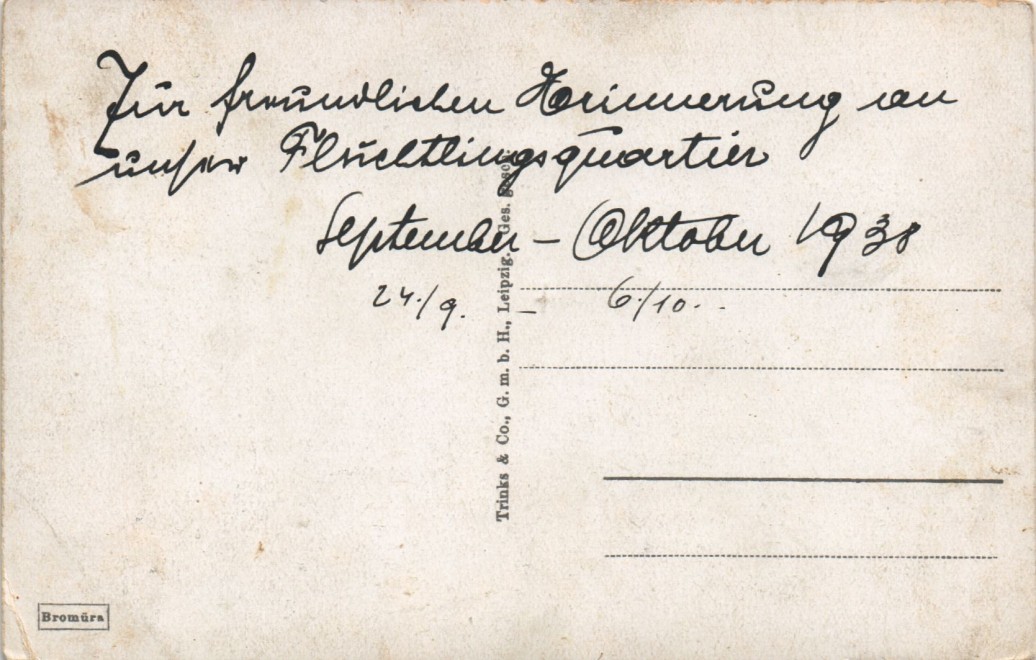 Zur freundlichen Erinnerung an
unser Flüchtlingsquartier
September – Oktober 1938
24./9. – 6./10..
Trinks & Co., G. m. b. H., Leipzig. Ges. gesch.
Bromüra